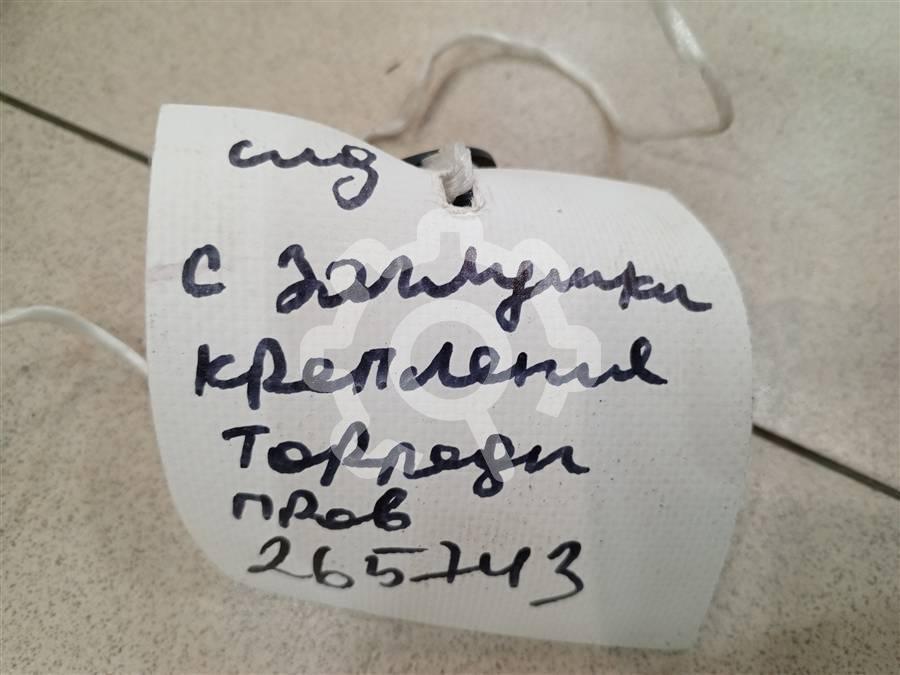 сид
с заглушки
крепления
торпеды
прав
265743